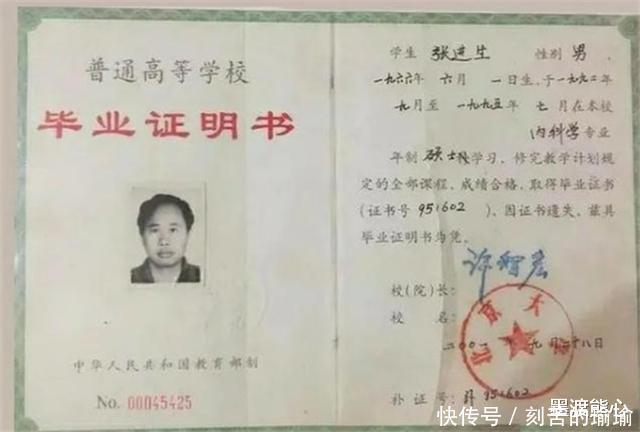 普通高等学校
毕业证明书
中华人民共和国教育部制
No. 00045425
学生 张进生 性别 男
一九六六年 六月 一日生,于一九九二年
九月至一九九五年 七月在本校
内科学 专业
年制 硕士 学习,修完教学计划规
定的全部课程,成绩合格,取得毕业证书
(证书号 951602 ),因证书遗失,兹具
毕业证明书为凭。
校(院)长:
许智宏
校 名:
北京大
二〇〇一年 九月二十八日
补 证 号: 951602
墨渡熊心
快传号 / 刻苦的瑜瑜